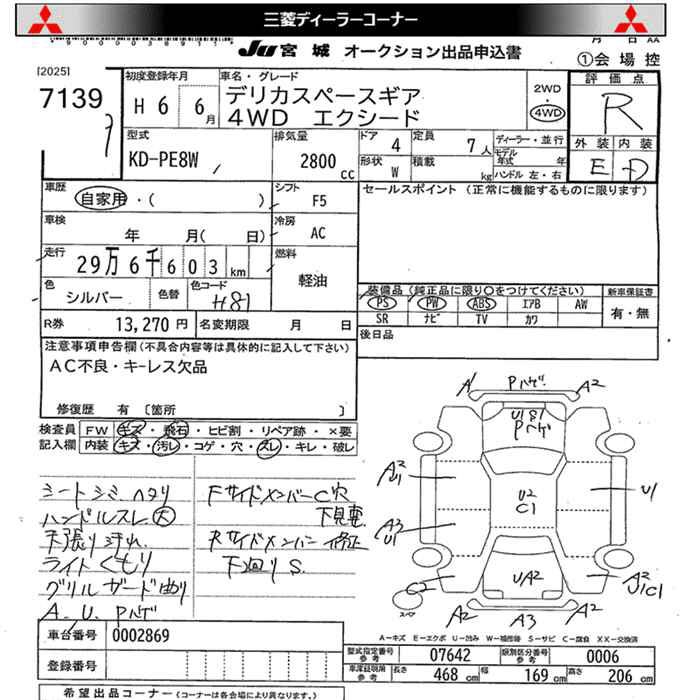 三菱ディーラーコーナー
JU 宮城 オークション出品申込書
①会場控
[2025]
7139
初度登録年月
H 6 6月
車名・グレード
デリカスペースギア
4WD エクシード
2WD
・
4WD
評価点
R
型式
KD-PE8W
排気量
2800cc
ドア 4
定員 7人
形状 W
積載 kg
ディーラー・並行
モデル年式 年
ハンドル 左・右
外装 内装
E D
車歴
自家用・( )
シフト
F5
セールスポイント (正常に機能するものに限ります)
車検
年 月( 日)
冷房
AC
走行
29万6千603km
燃料
軽油
色
シルバー
色替
色コード
H81
装備品(純正品に限り○をつけてください)
新車保証書
PS PW ABS エアB AW
SR ナビ TV カワ
有・無
R券 13,270円
名変期限 月 日
後日品
注意事項申告欄(不具合内容等は具体的に記入して下さい)
AC不良・キーレス欠品
修復歴 有 〔箇所 〕
検査員記入欄
FW キズ・飛石・ヒビ割・リペア跡・×要
内装 キズ・汚レ・コゲ・穴・スレ・キレ・破レ
シートシミヘタリ
ハンドルスレ大
天張り汚れ
ライトくもり
グリルガード曲り
A.U.Pハゲ
Fサイドメンバー C穴
下見要
Rサイドメンバー修正
下廻りS.
A Pハゲ A2
U181
Pハゲ
A2
U1
U1
U2
C1
A3
U1
UA2
C2
A2
U1C1
スペア
A2 A3 A2
A-キズ E-エクボ U-凹み W-補修跡 S-サビ C-腐食 XX-交換済
車台番号 0002869
登録番号
型式指定番号 参考 07642
類別区分番号 参考 0006
車庫証明用 参考 長さ 468 cm 幅 169 cm 高さ 206 cm
希望出品コーナー(コーナーは各会場により異なります。)